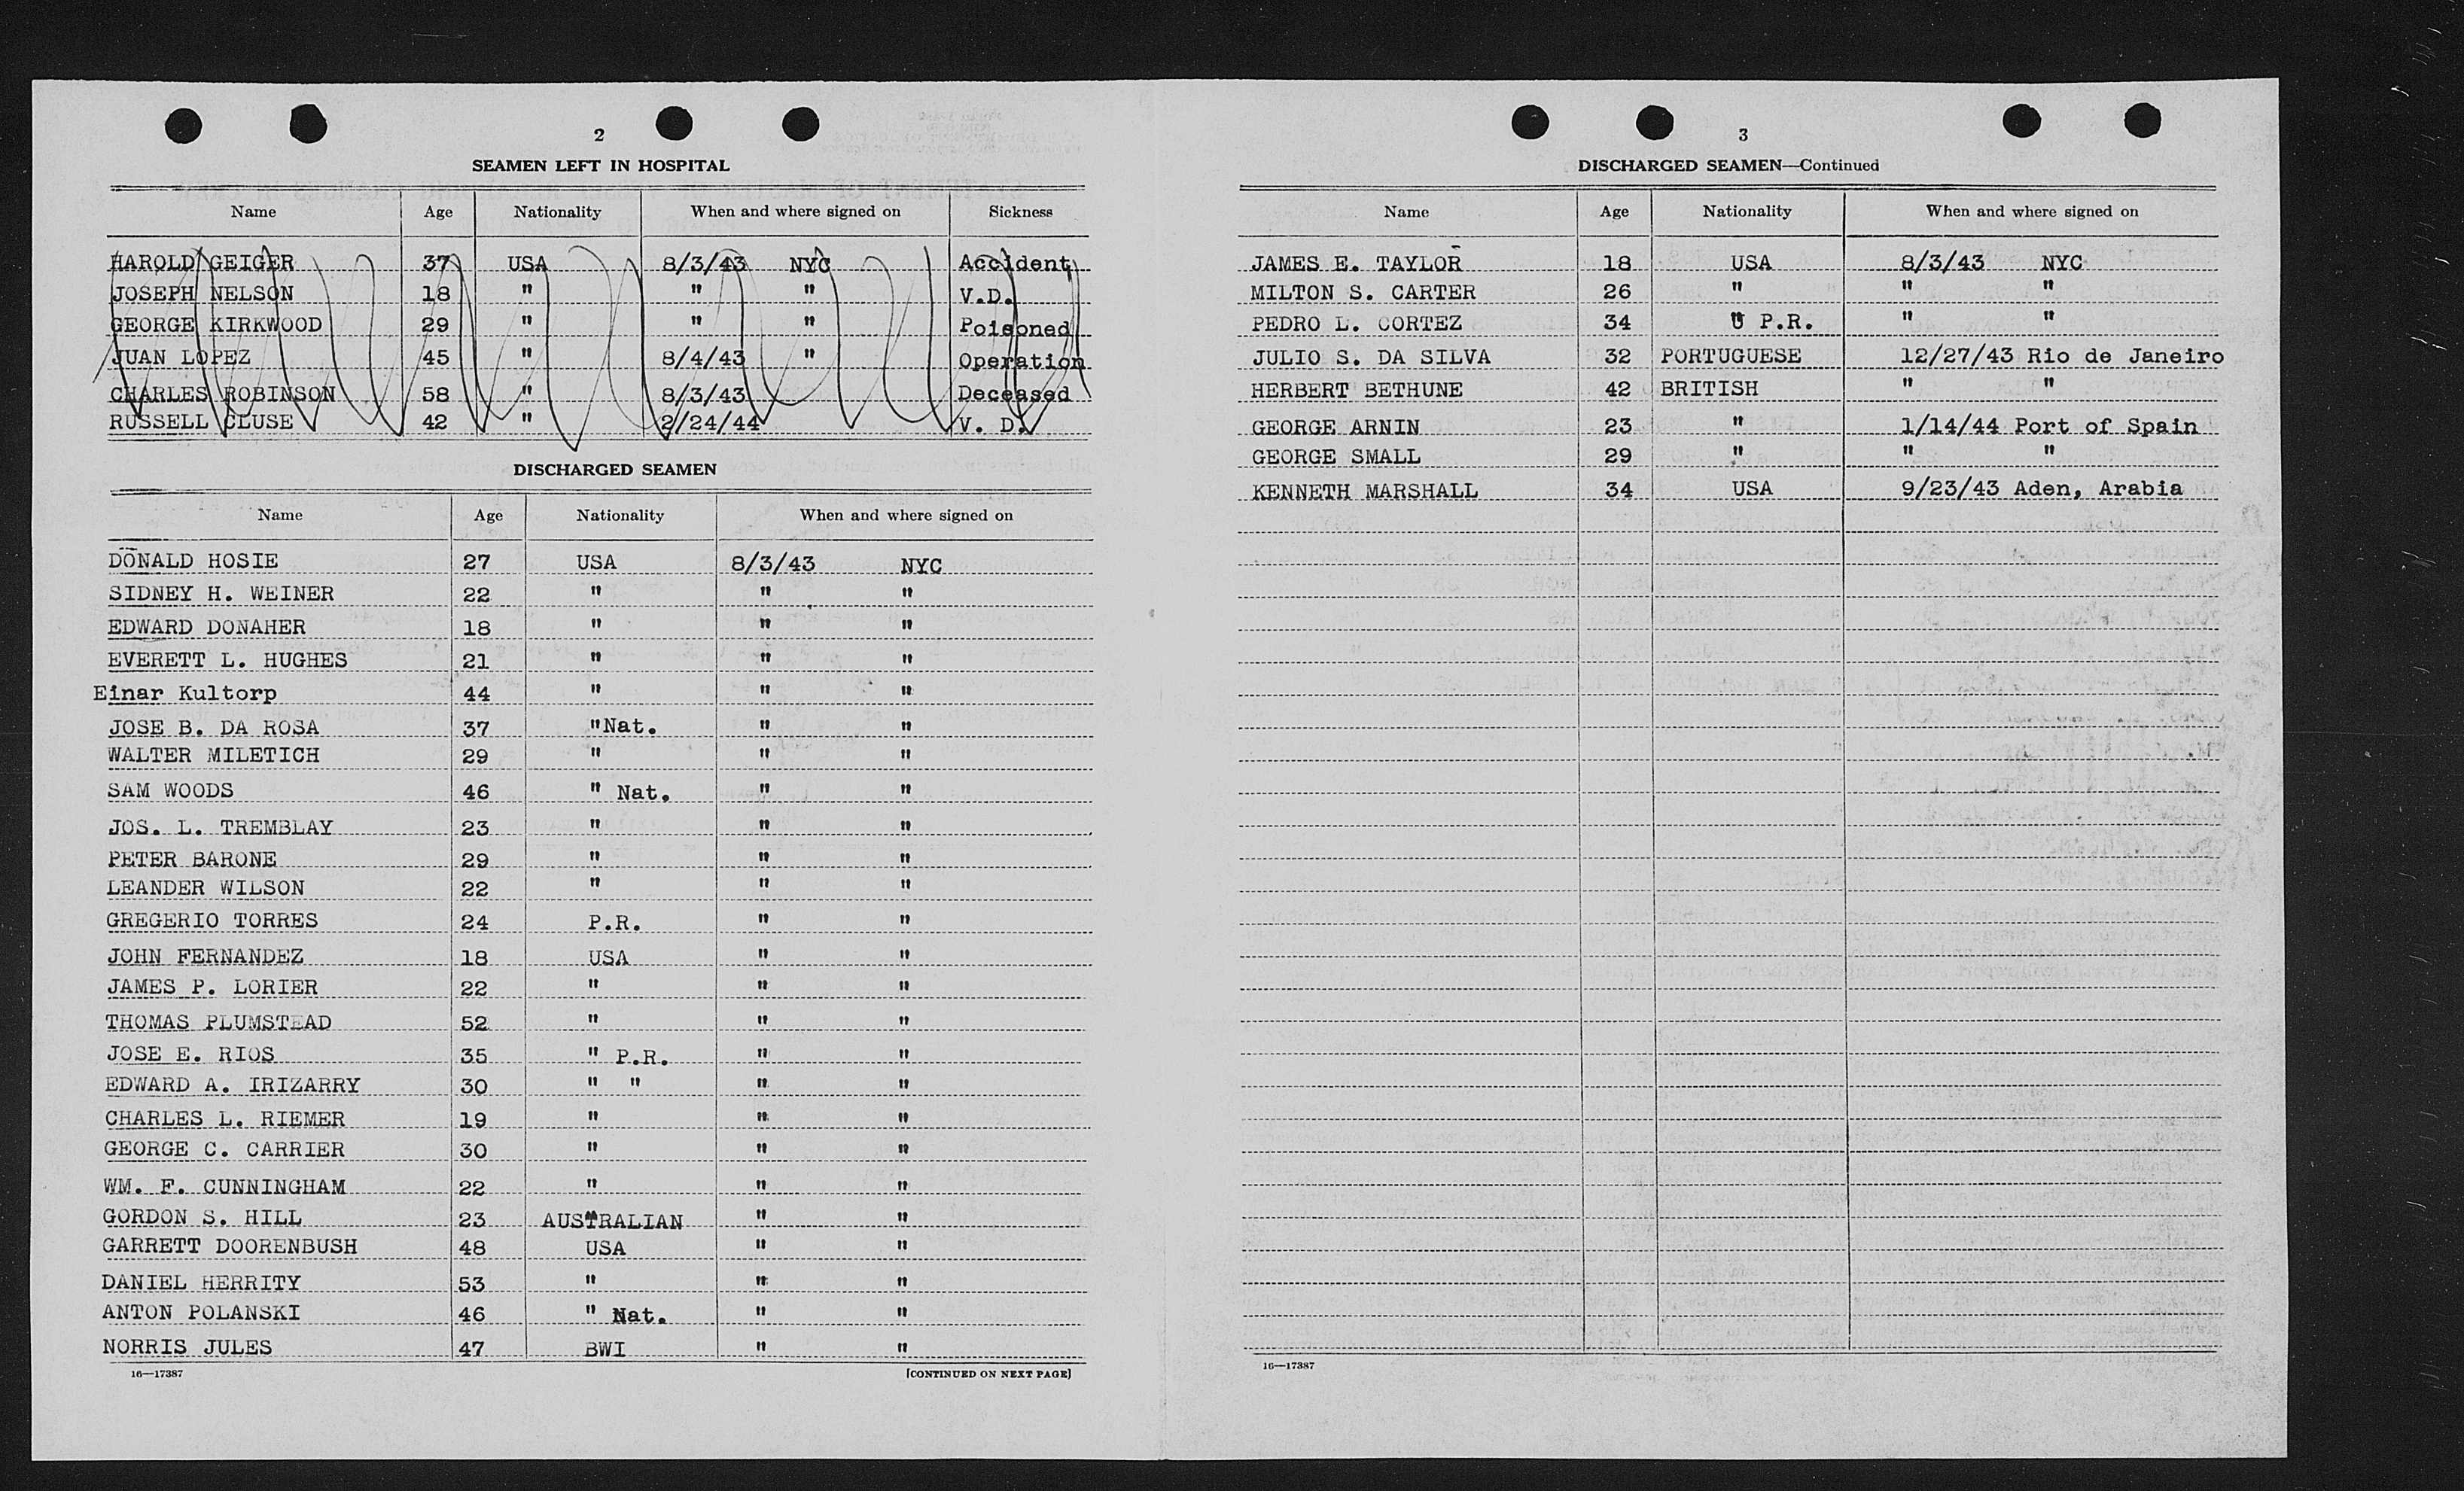 2
SEAMEN LEFT IN HOSPITAL
Name Age Nationality When and where signed on Sickness
HAROLD GEIGER 37 USA 8/3/43 NYC Accident
JOSEPH NELSON 18 " " " V.D.
GEORGE KIRKWOOD 29 " " " Poisoned
JUAN LOPEZ 45 " 8/4/43 " Operation
CHARLES ROBINSON 58 " 8/3/43 Deceased
RUSSELL CLUSE 42 " 2/24/44 V. D.
DISCHARGED SEAMEN
Name Age Nationality When and where signed on
DONALD HOSIE 27 USA 8/3/43 NYC
SIDNEY H. WEINER 22 " " "
EDWARD DONAHER 18 " " "
EVERETT L. HUGHES 21 " " "
Einar Kultorp 44 " " "
JOSE B. DA ROSA 37 "Nat. " "
WALTER MILETICH 29 " " "
SAM WOODS 46 " Nat. " "
JOS. L. TREMBLAY 23 " " "
PETER BARONE 29 " " "
LEANDER WILSON 22 " " "
GREGERIO TORRES 24 P.R. " "
JOHN FERNANDEZ 18 USA " "
JAMES P. LORIER 22 " " "
THOMAS PLUMSTEAD 52 " " "
JOSE E. RIOS 35 " P.R. " "
EDWARD A. IRIZARRY 30 " " " "
CHARLES L. RIEMER 19 " " "
GEORGE C. CARRIER 30 " " "
WM. F. CUNNINGHAM 22 " " "
GORDON S. HILL 23 AUSTRALIAN " "
GARRETT DOORENBUSH 48 USA " "
DANIEL HERRITY 53 " " "
ANTON POLANSKI 46 " Nat. " "
NORRIS JULES 47 BWI " "
16—17387 [CONTINUED ON NEXT PAGE]
3
DISCHARGED SEAMEN—Continued
Name Age Nationality When and where signed on
JAMES E. TAYLOR 18 USA 8/3/43 NYC
MILTON S. CARTER 26 " " "
PEDRO L. CORTEZ 34 " P.R. " "
JULIO S. DA SILVA 32 PORTUGUESE 12/27/43 Rio de Janeiro
HERBERT BETHUNE 42 BRITISH " "
GEORGE ARNIN 23 " 1/14/44 Port of Spain
GEORGE SMALL 29 " " "
KENNETH MARSHALL 34 USA 9/23/43 Aden, Arabia
16—17387